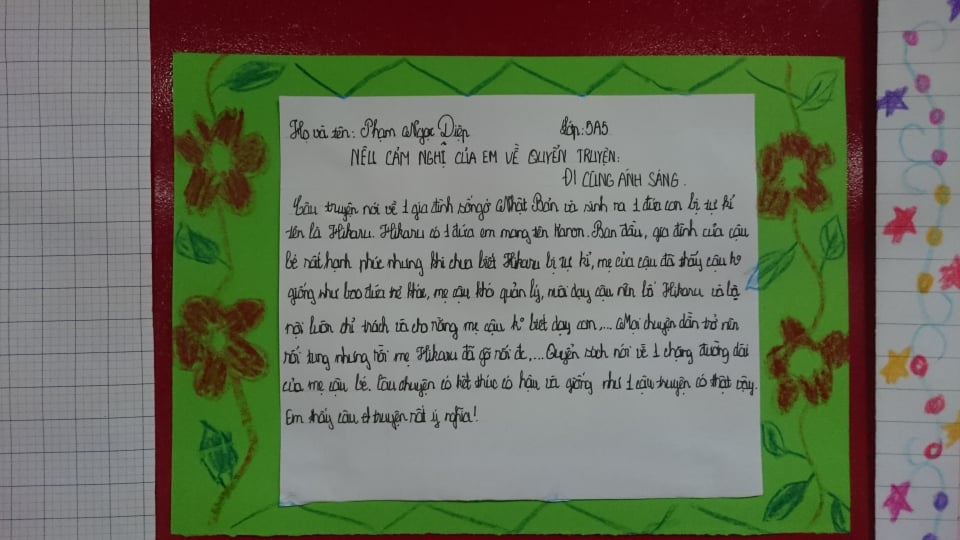 Họ và tên: Phạm Ngọc Diệp Lớp: 5A5
NÊU CẢM NGHĨ CỦA EM VỀ QUYỂN TRUYỆN:
ĐI CÙNG ÁNH SÁNG.
Câu truyện nói về 1 gia đình sống ở Nhật Bản và sinh ra 1 đứa con bị tự kỉ
tên là Hikaru. Hikaru có 1 đứa em mang tên Kanon. Ban đầu, gia đình của cậu
bé rất hạnh phúc nhưng khi chưa biết Hikaru bị tự kỉ, mẹ của cậu đã thấy cậu ko
giống như bao đứa trẻ khác, mẹ cậu khó quản lý, nuôi dạy cậu nên bố Hikaru và bà
nội luôn chỉ trách và cho rằng mẹ cậu ko biết dạy con,... Mọi chuyện dần trở nên
rối tung nhưng rồi mẹ Hikaru đã gỡ rối đc,... Quyển sách nói về 1 chặng đường dài
của mẹ cậu bé. Câu chuyện có kết thúc có hậu và giống như 1 câu truyện có thật vậy.
Em thấy câu truyện rất ý nghĩa!